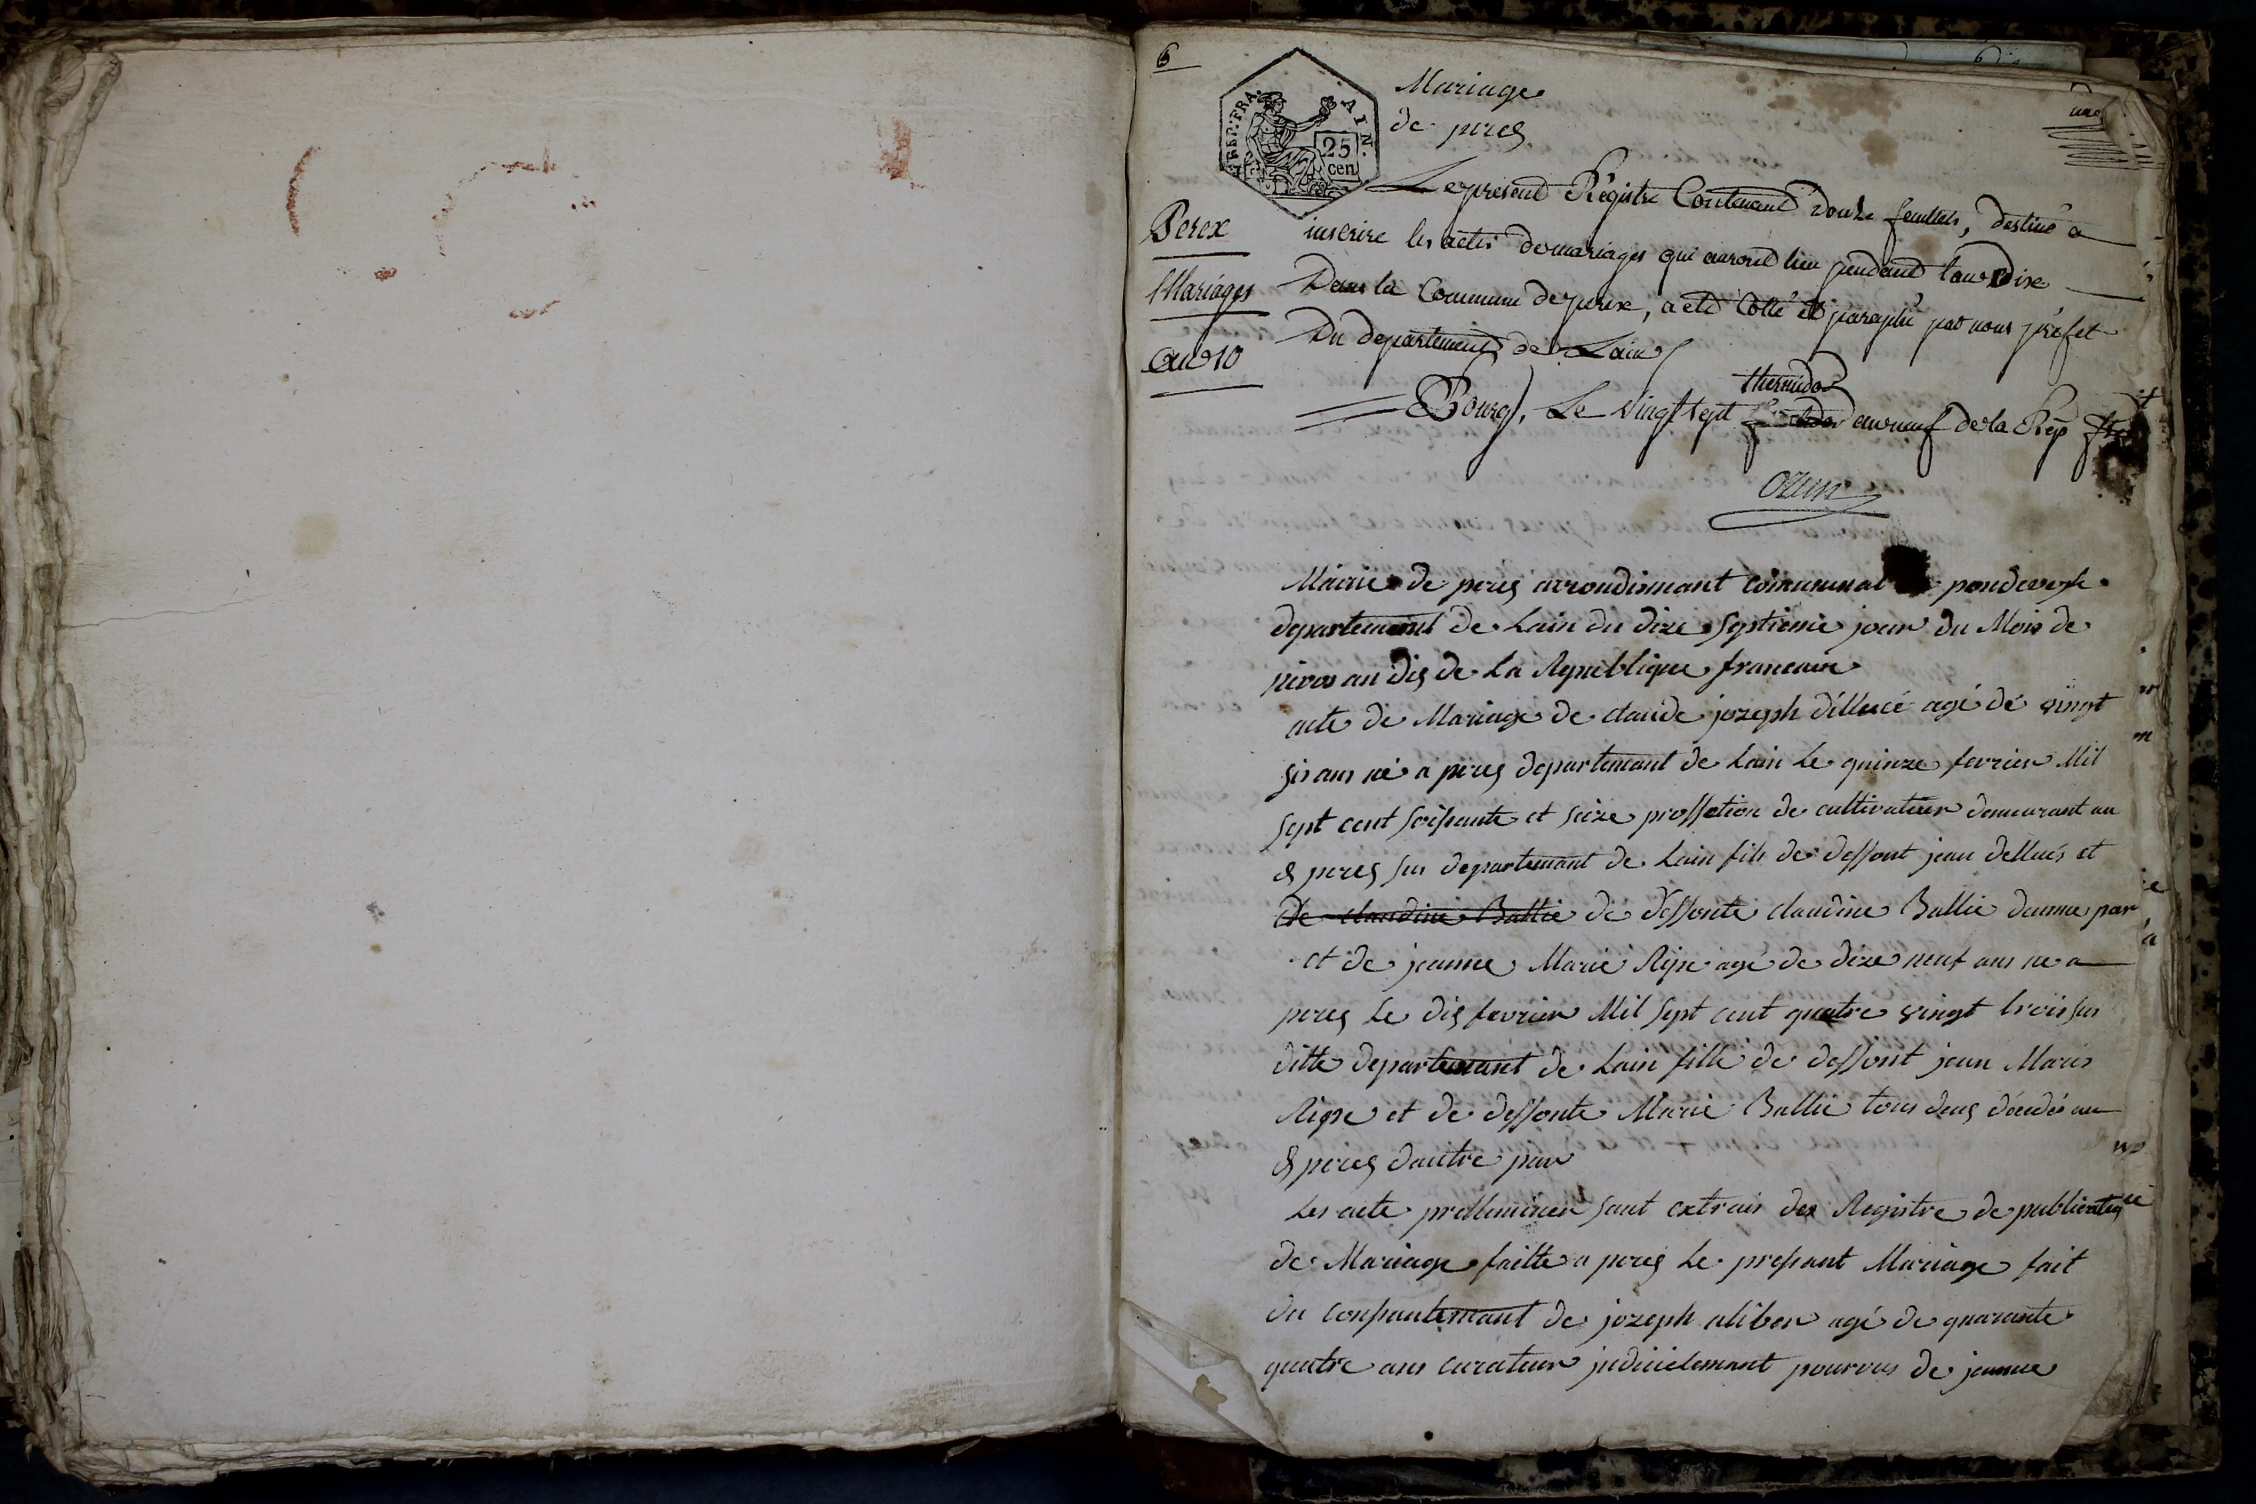 6
Mariage
de perex
une
REP. FRA. AIN.
25
cen
Perex
Mariages
an 10
Le present Régistre Contenant douze feuillets, destiné a
inscrire les actes de mariages qui auront lieu pendant l'an dix
Dans la Commune de perex, a eté Cotté et paraphé par nous préfet
Du departement de Lain
thermidor
Bourg, Le vingt sept an neuf de la Rep fse
Ozun
Mairie de perex arrondissmant communal pondevesle
departement de Lain du dixe septieme jour du Mois de
nivos an dix de La Republique francaise
acte de Mariage de claude jozeph déllucé agé de vingt
six ans né a perex departemant de Lain Le quinze fevrier Mil
sept cent soissante et seize proffetion de cultivateur demeurant au
& perex sus departemant de Lain fils de deffont jean dellucé et
de claudine Ballie de deffonte claudine Ballie dunne par
et de jeanne Marie Ripe agé de dixe neuf ans ne a
perex Le dix fevrier Mil sept cent quatre vingt trois sus
ditte departemant de Lain fille de deffont jean Marie
Ripe et de deffonte Marie Ballie tous deux décédés au
& perex dautre par
Les acte preliminer sont extrais des Registre de publication
de Mariage faitte a perex Le present Mariage fait
du consantemant de jozeph aliber agé de quarante
quatre ans curateur judicielemant pourvus de jeanne